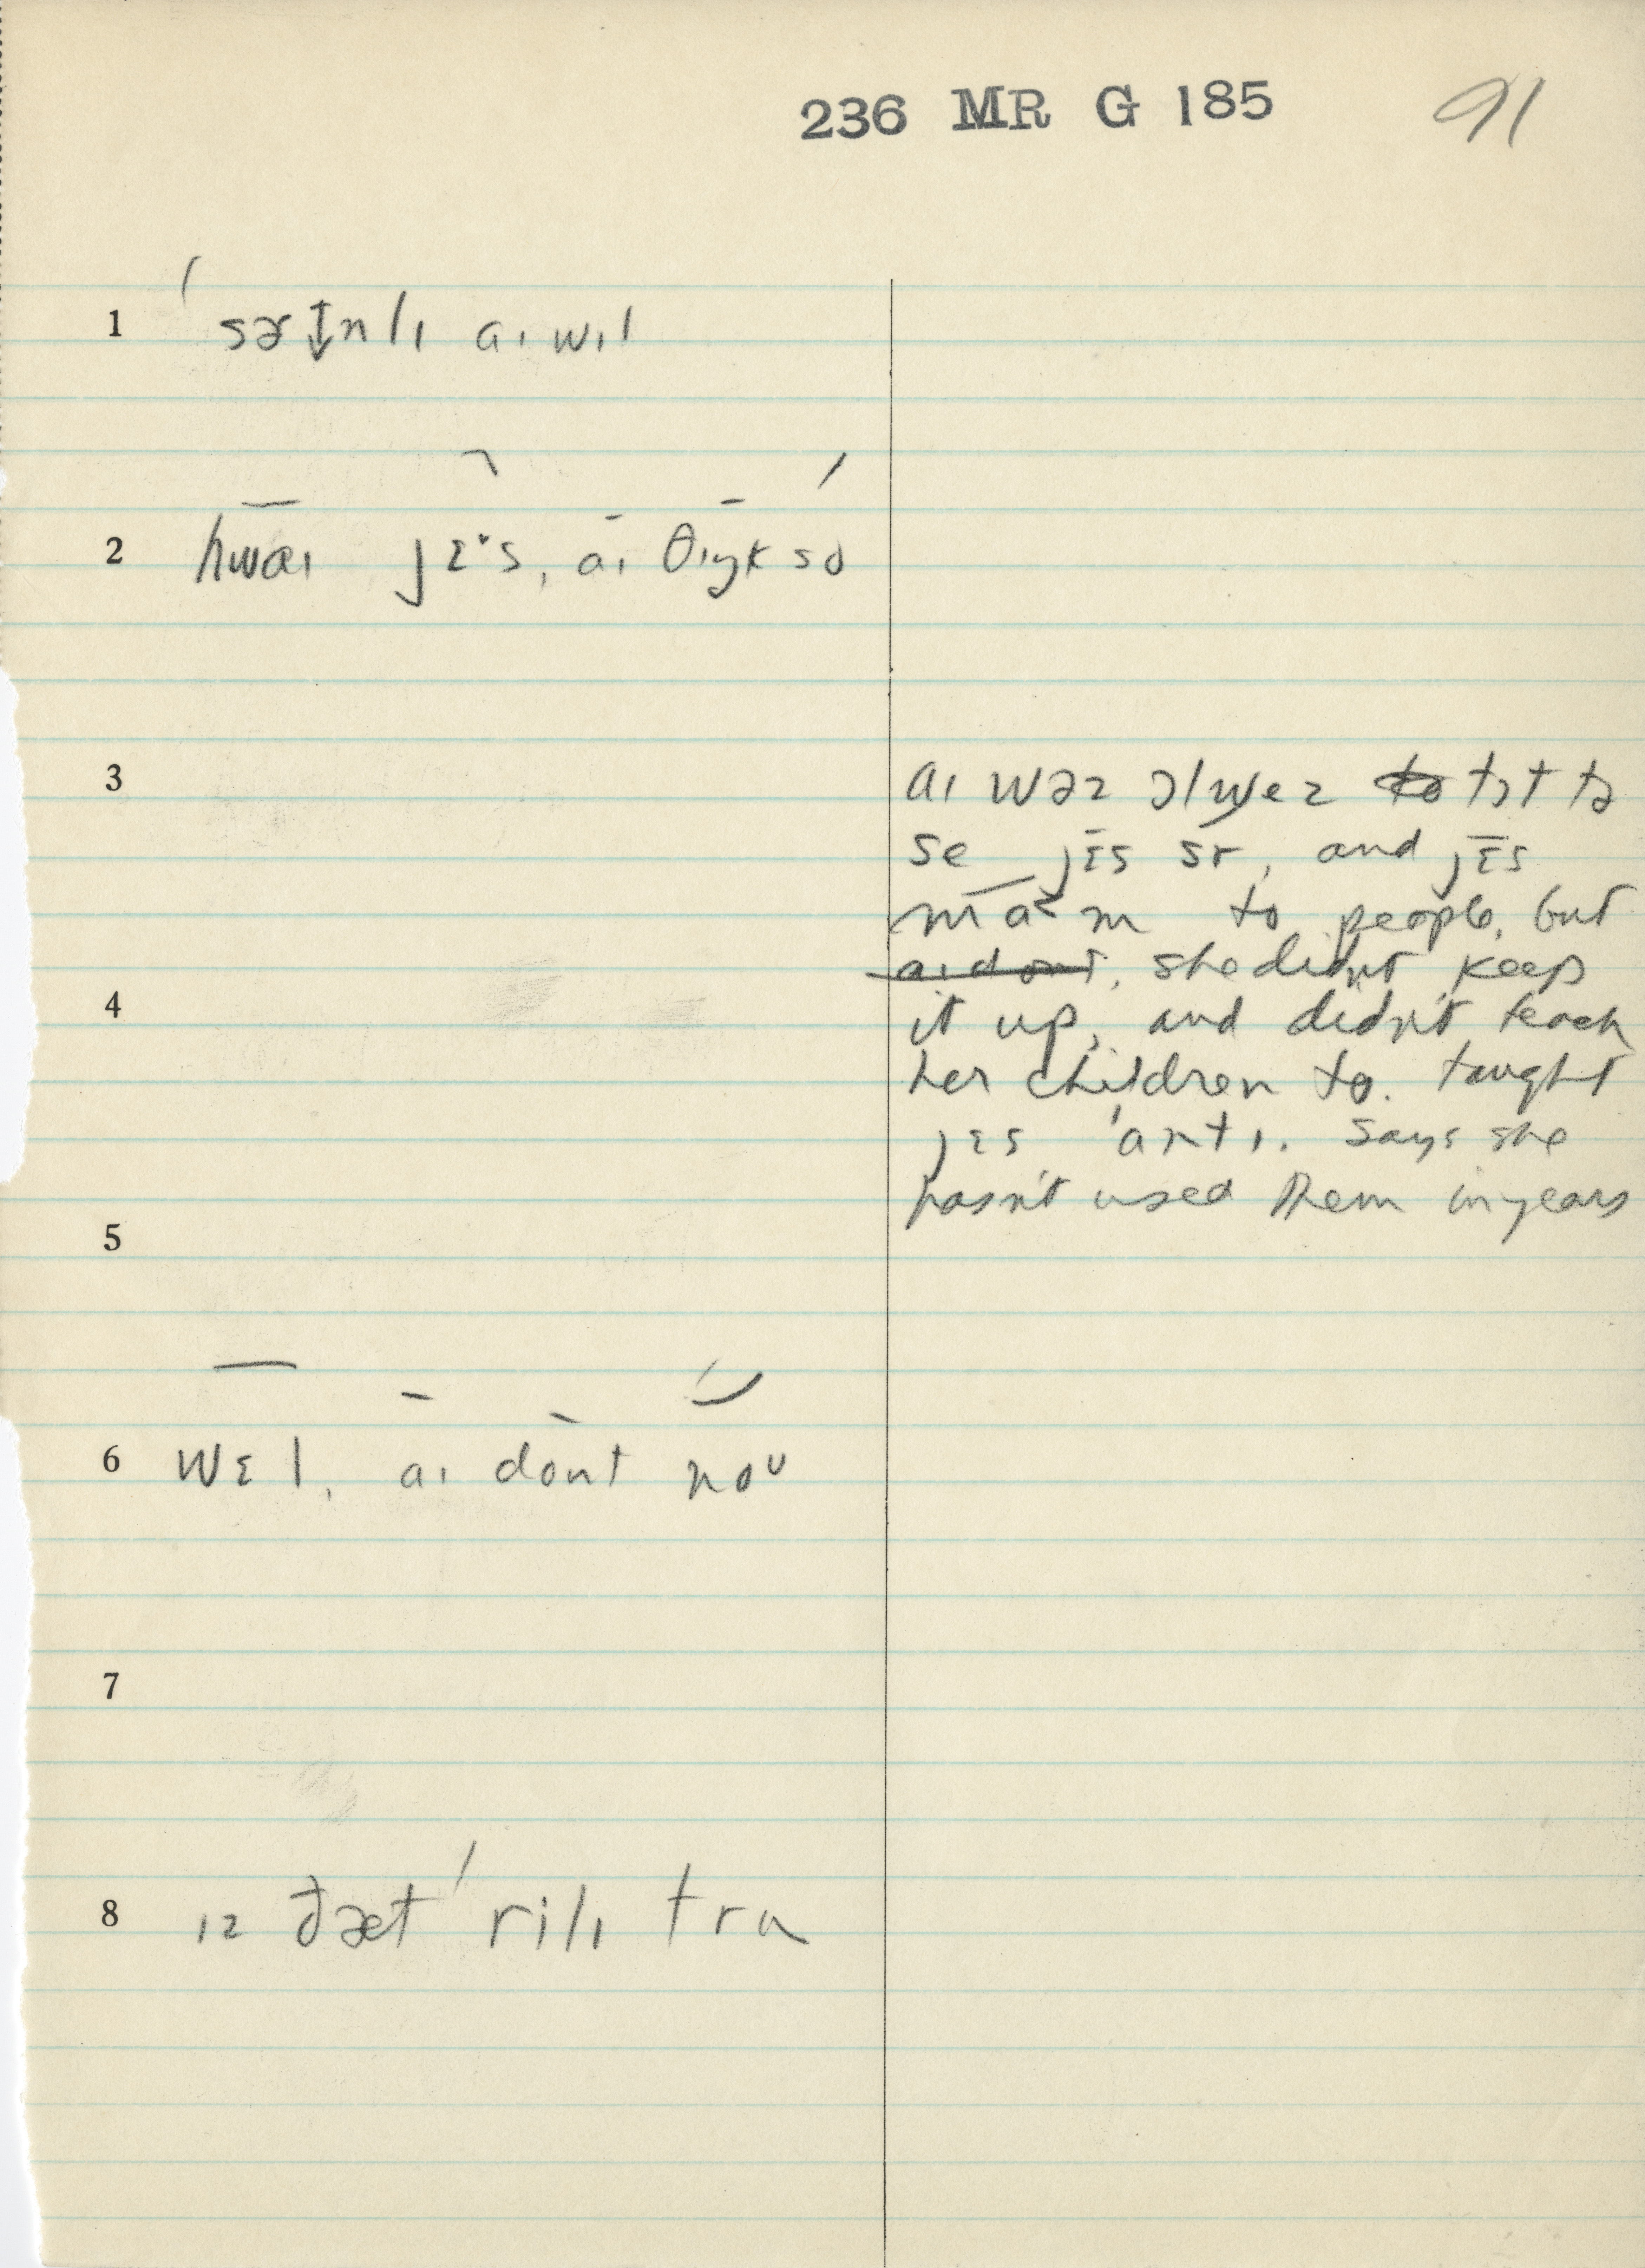 236 MR G 185 91
1 ˈsɚtn̩lɪ aɪ wɪl
2 hwaɪ jɛˑs, aɪ θɪŋk so
3 aɪ wəz ɔlwez tɔt tə
se jɛs sr, and jɛs
mam to people, but
aɪ dont, she didn't keep
4 it up, and didn't teach
her children to. taught
jɛs ˈantɪ. Says she
hasn't used them in years
5
6 wɛl, aɪ dont noᵁ
7
8 ɪz ðæt ˈrilɪ tru